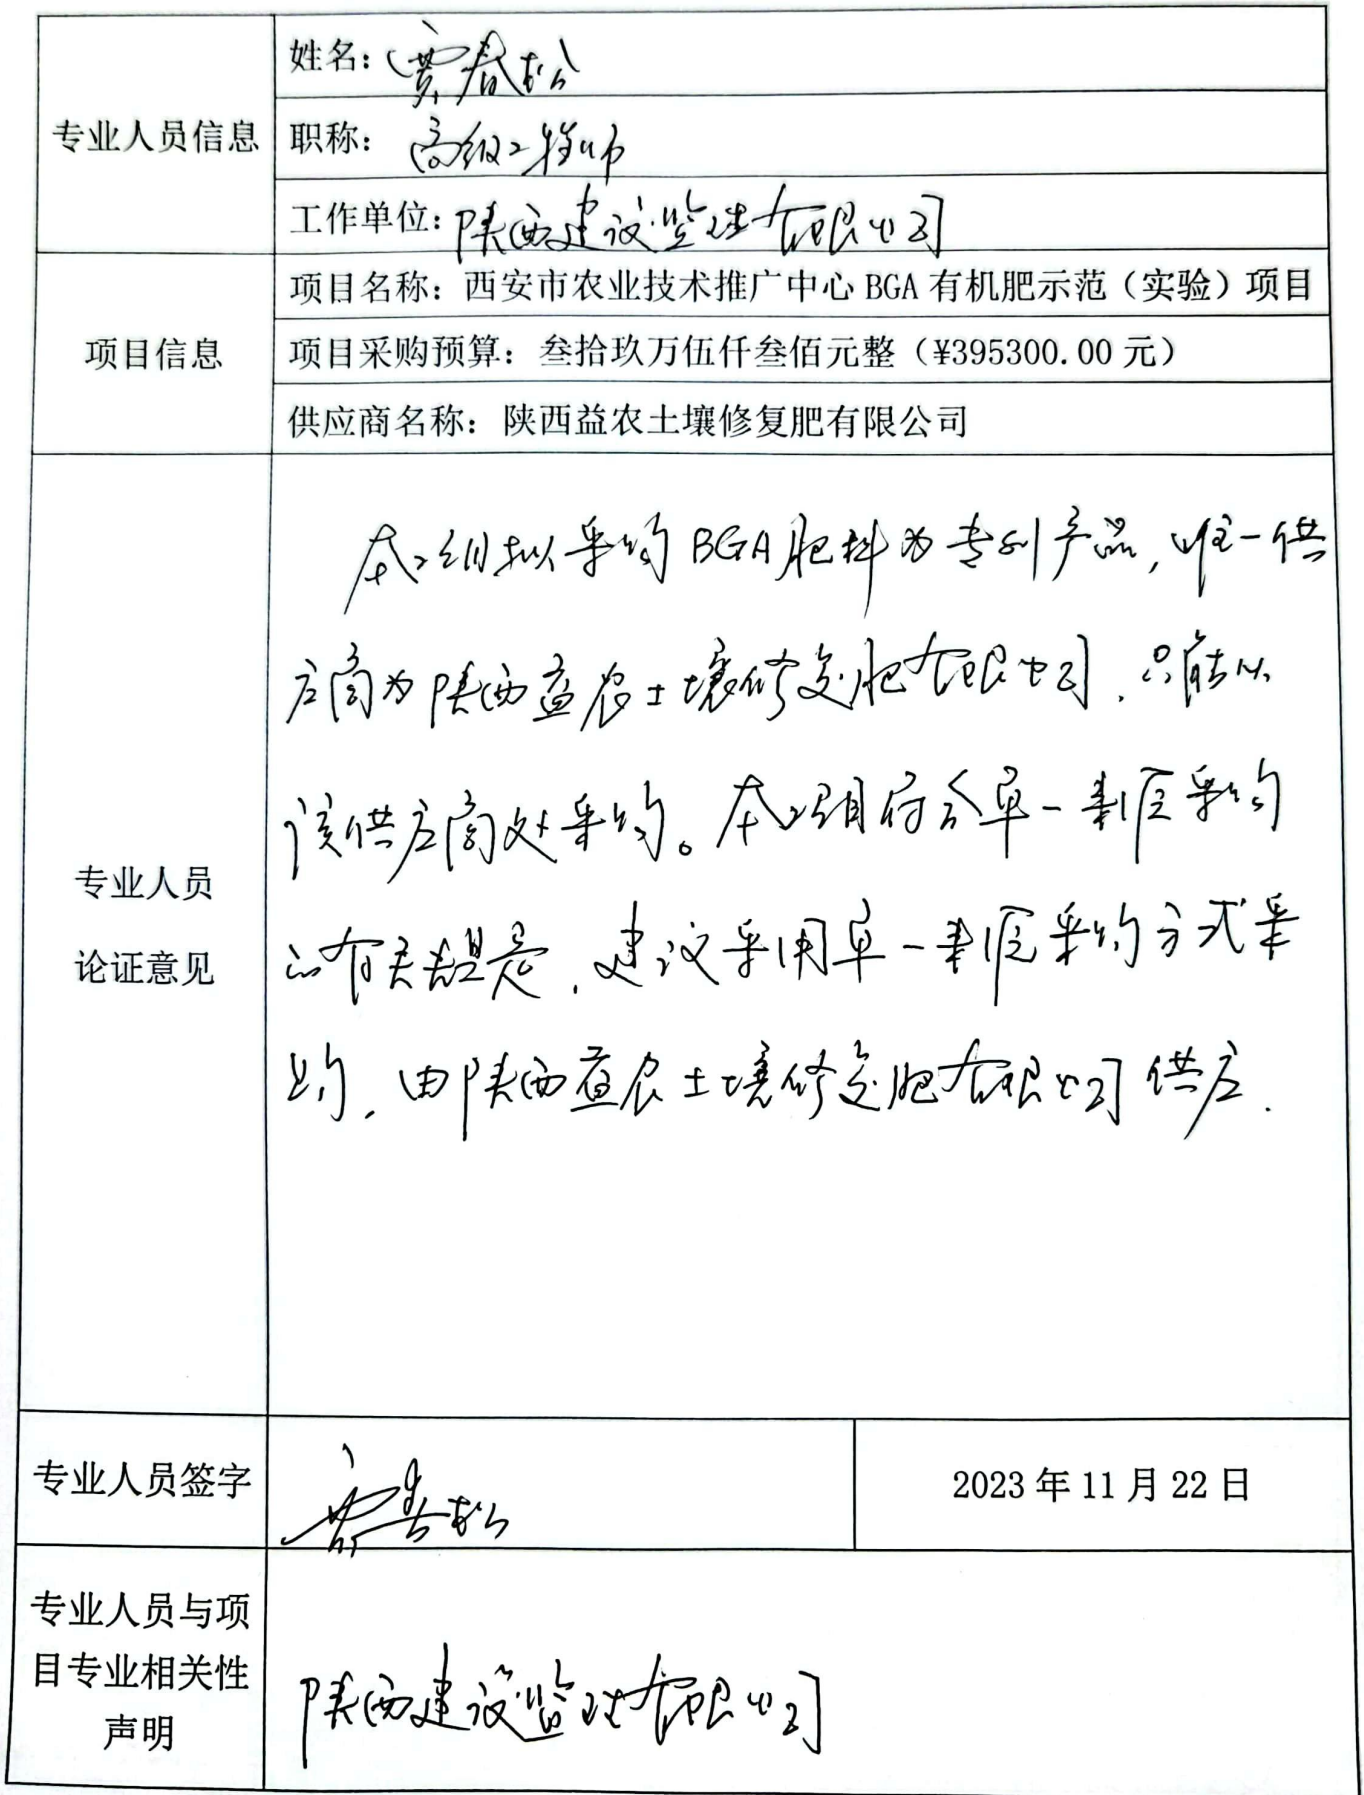 专业人员信息
姓名：贾春松
职称：高级工程师
工作单位：陕西建设监理有限公司
项目信息
项目名称：西安市农业技术推广中心 BGA 有机肥示范（实验）项目
项目采购预算：叁拾玖万伍仟叁佰元整（¥395300.00 元）
供应商名称：陕西益农土壤修复肥有限公司
专业人员
论证意见
本项目拟采购BGA肥料为专利产品，唯一供
应商为陕西益农土壤修复肥有限公司，只能从
该供应商处采购。本项目符合单一来源采购
的有关规定，建议采用单一来源采购方式采
购，由陕西益农土壤修复肥有限公司供应.
专业人员签字
贾春松
2023 年 11 月 22 日
专业人员与项
目专业相关性
声明
陕西建设监理有限公司